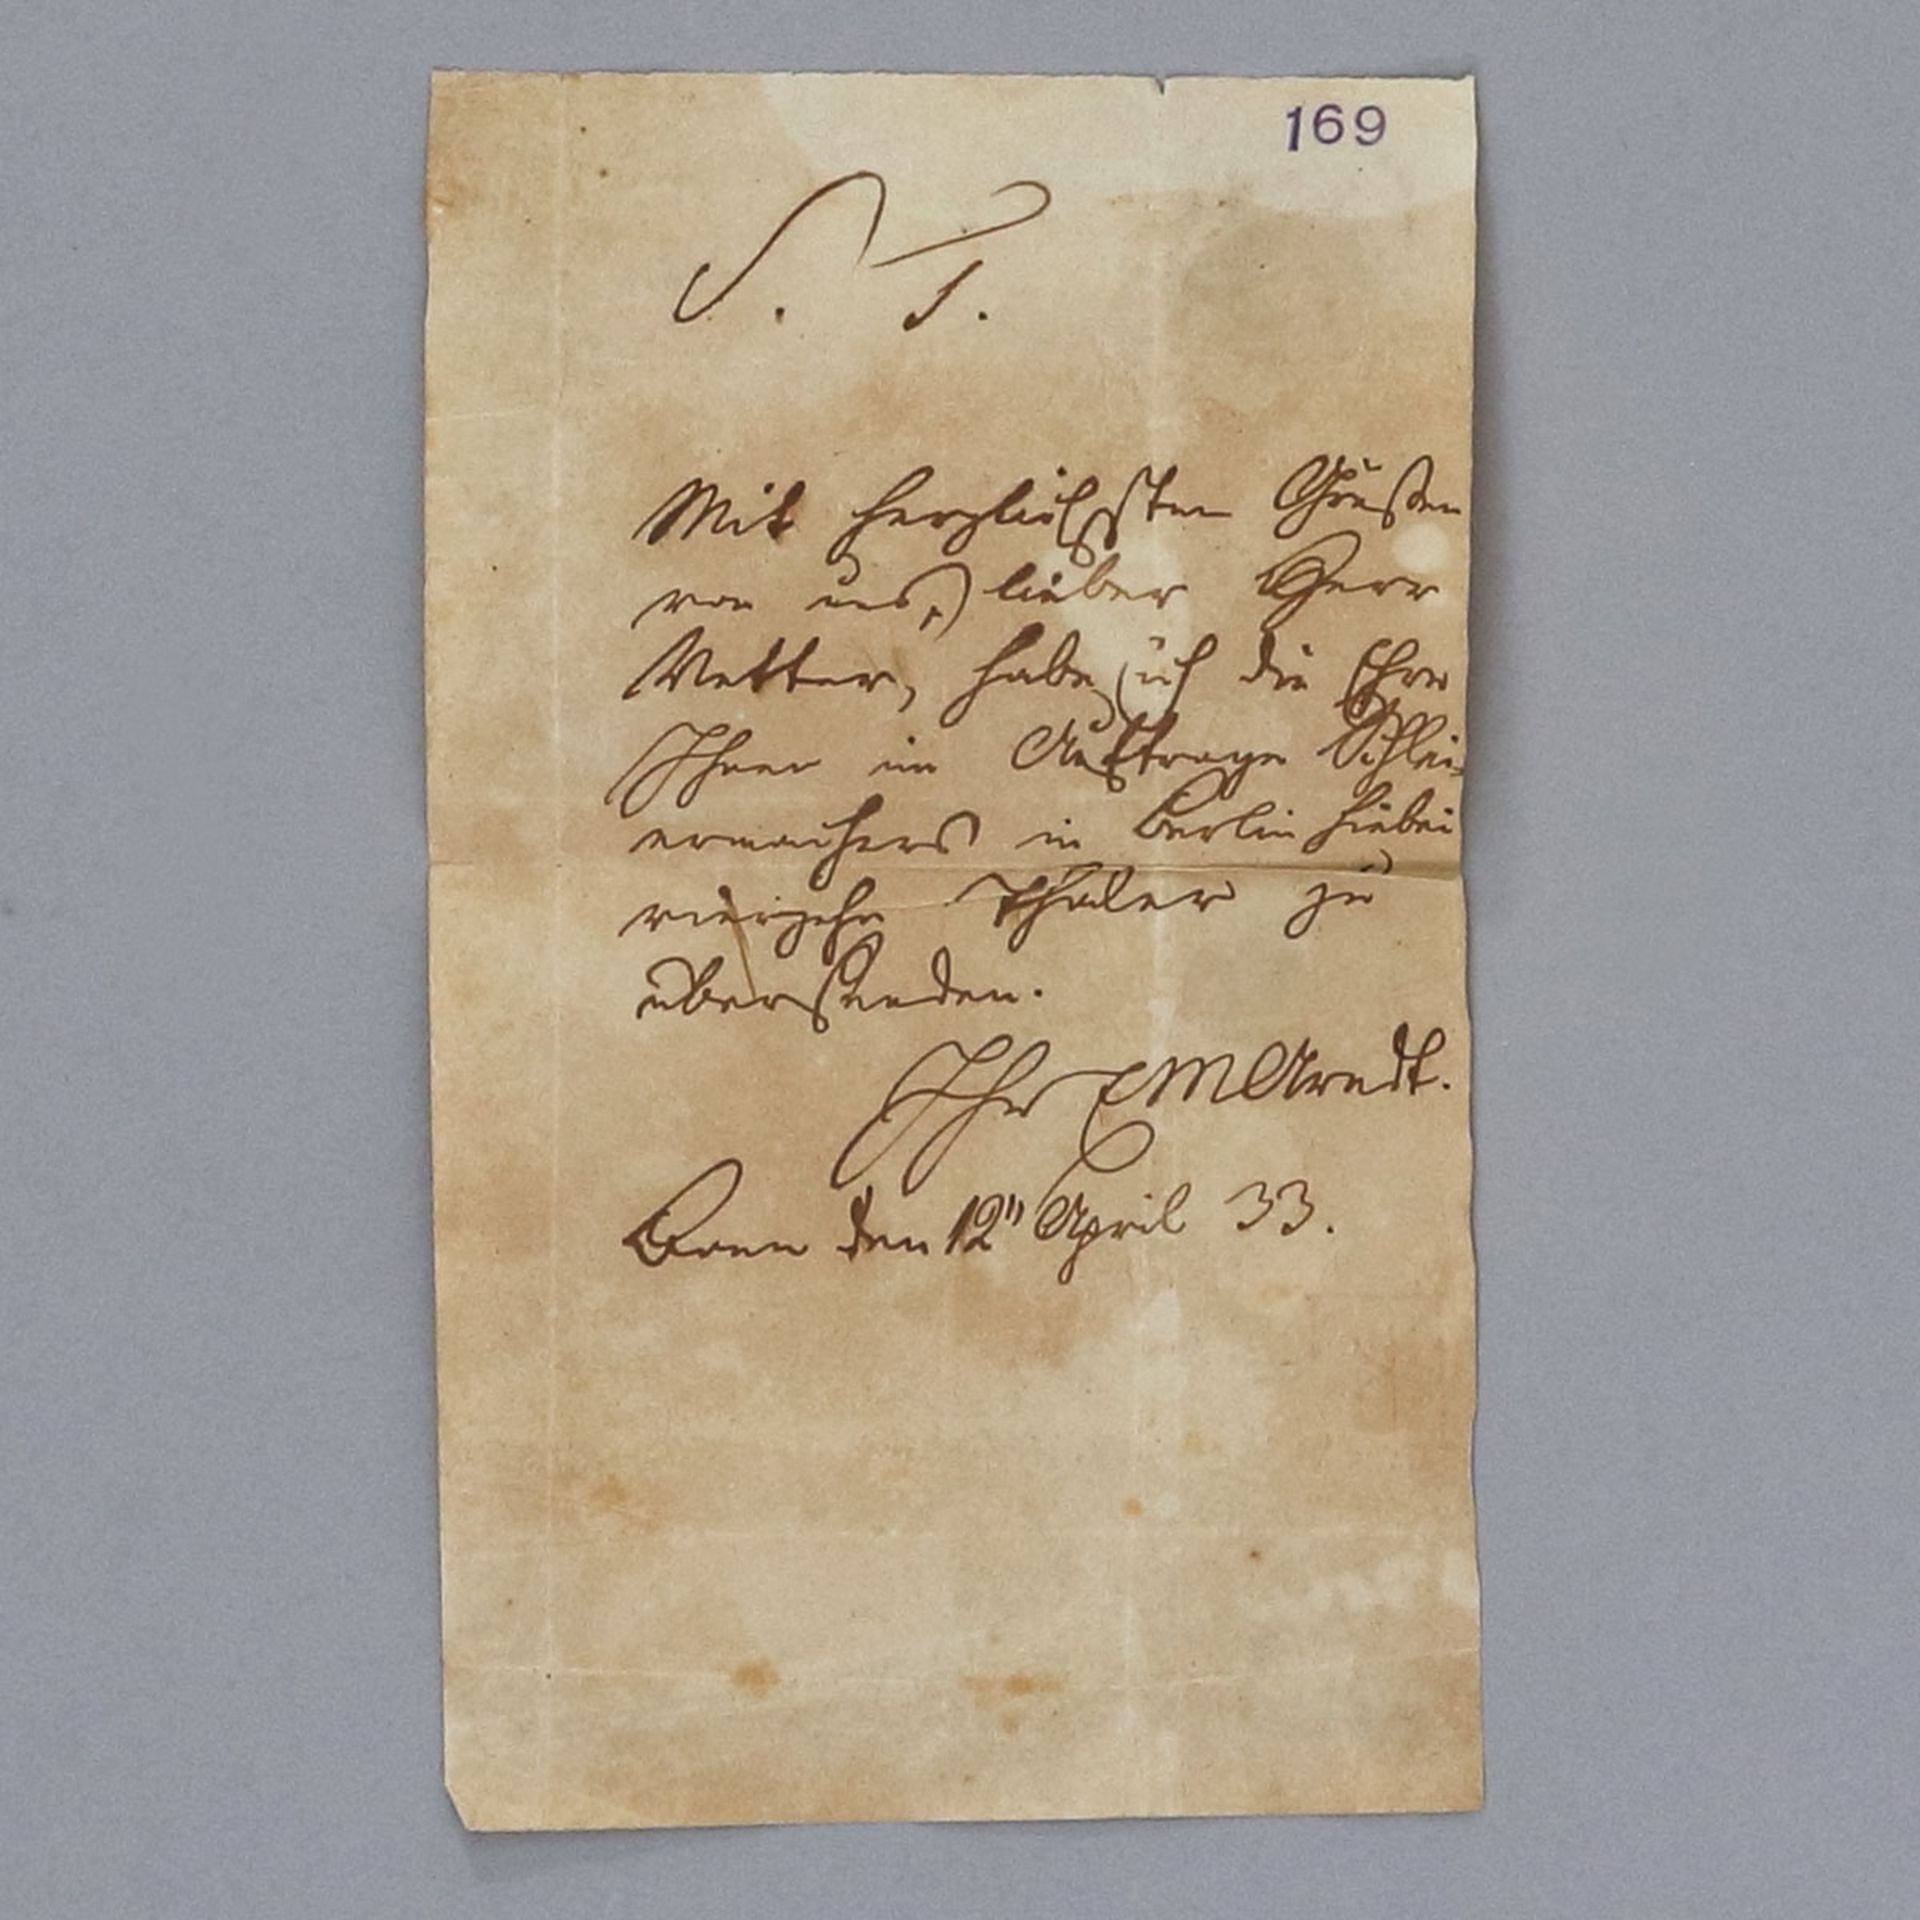 169
S. T.
Mit herzlichsten Grüßen
von uns, lieber Herr
Vetter, habe ich die Ehre
Ihnen im Auftrage Schlei-
ermachers in Berlin hiebei
vierzehn Thaler zu
übersenden.
Ihr EMArndt.
Bonn den 12" April 33.